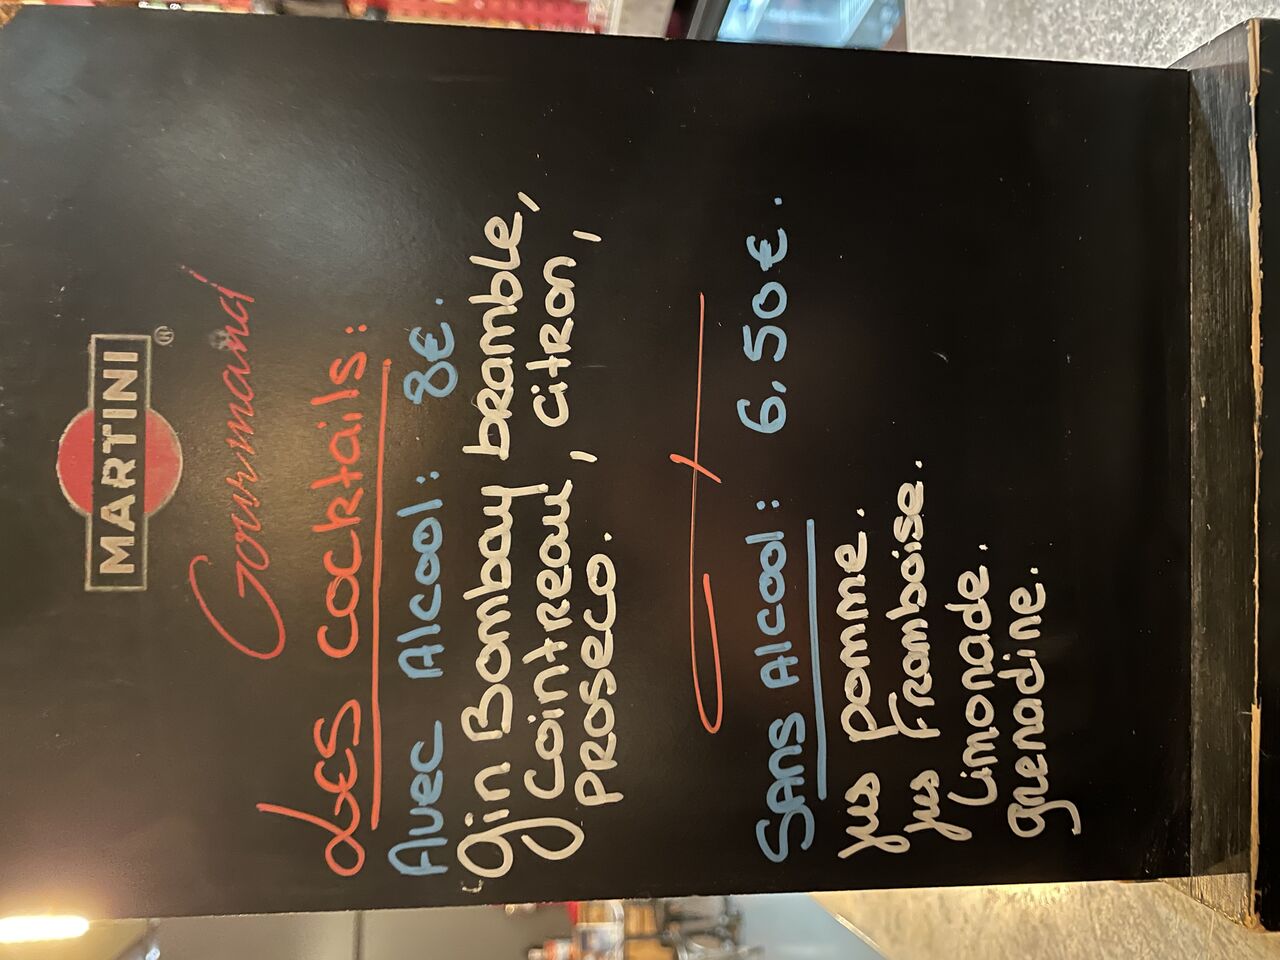 MARTINI ®
Gourmand
Les cocktails :
Avec Alcool : 8€.
Gin Bombay bramble,
Cointreau, citron,
proseco.
Sans Alcool : 6,50€.
jus pomme.
jus Framboise.
Limonade.
grenadine.